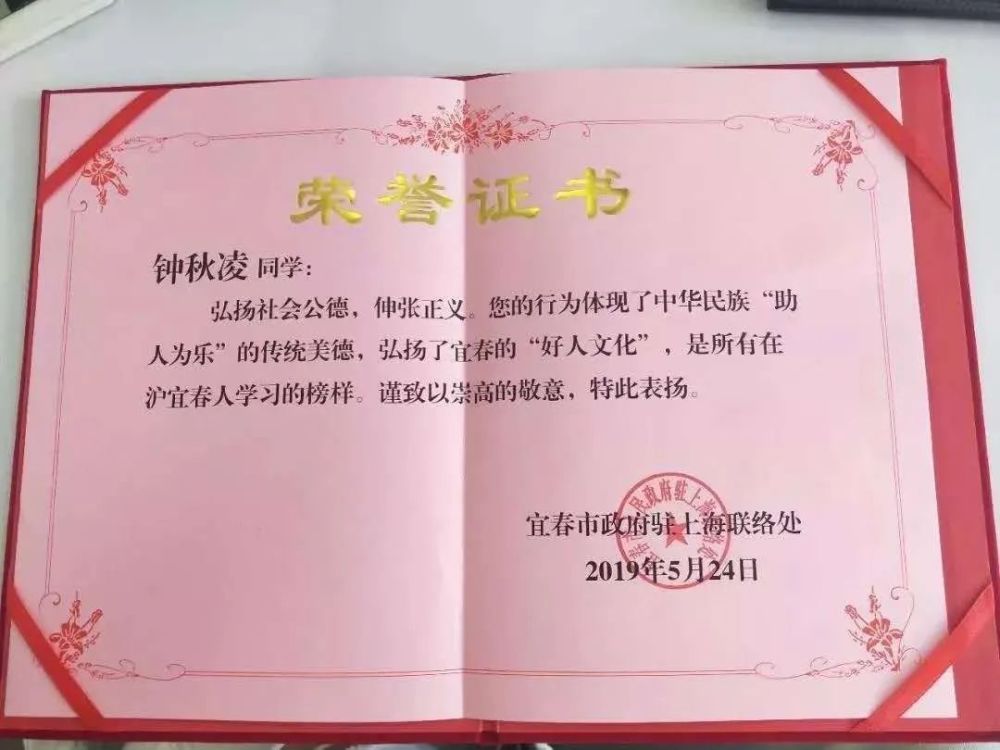 荣誉证书
钟秋凌 同学：
弘扬社会公德，伸张正义。您的行为体现了中华民族“助
人为乐”的传统美德，弘扬了宜春的“好人文化”，是所有在
沪宜春人学习的榜样。谨致以崇高的敬意，特此表扬。
民政府驻上海
宜春市政府驻上海联络处
2019年5月24日